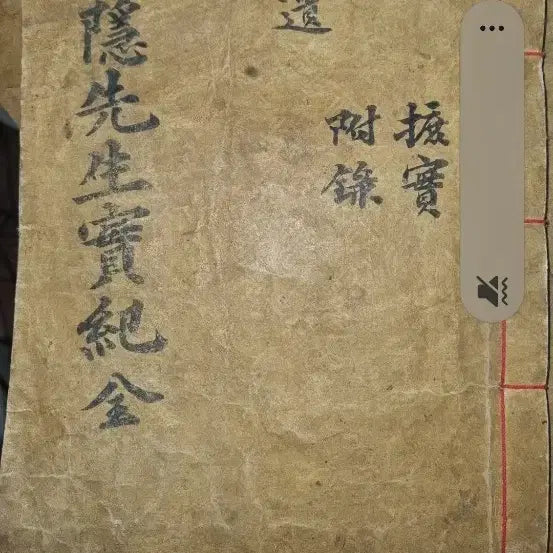 摭實
附錄
遺
隱先生實紀全